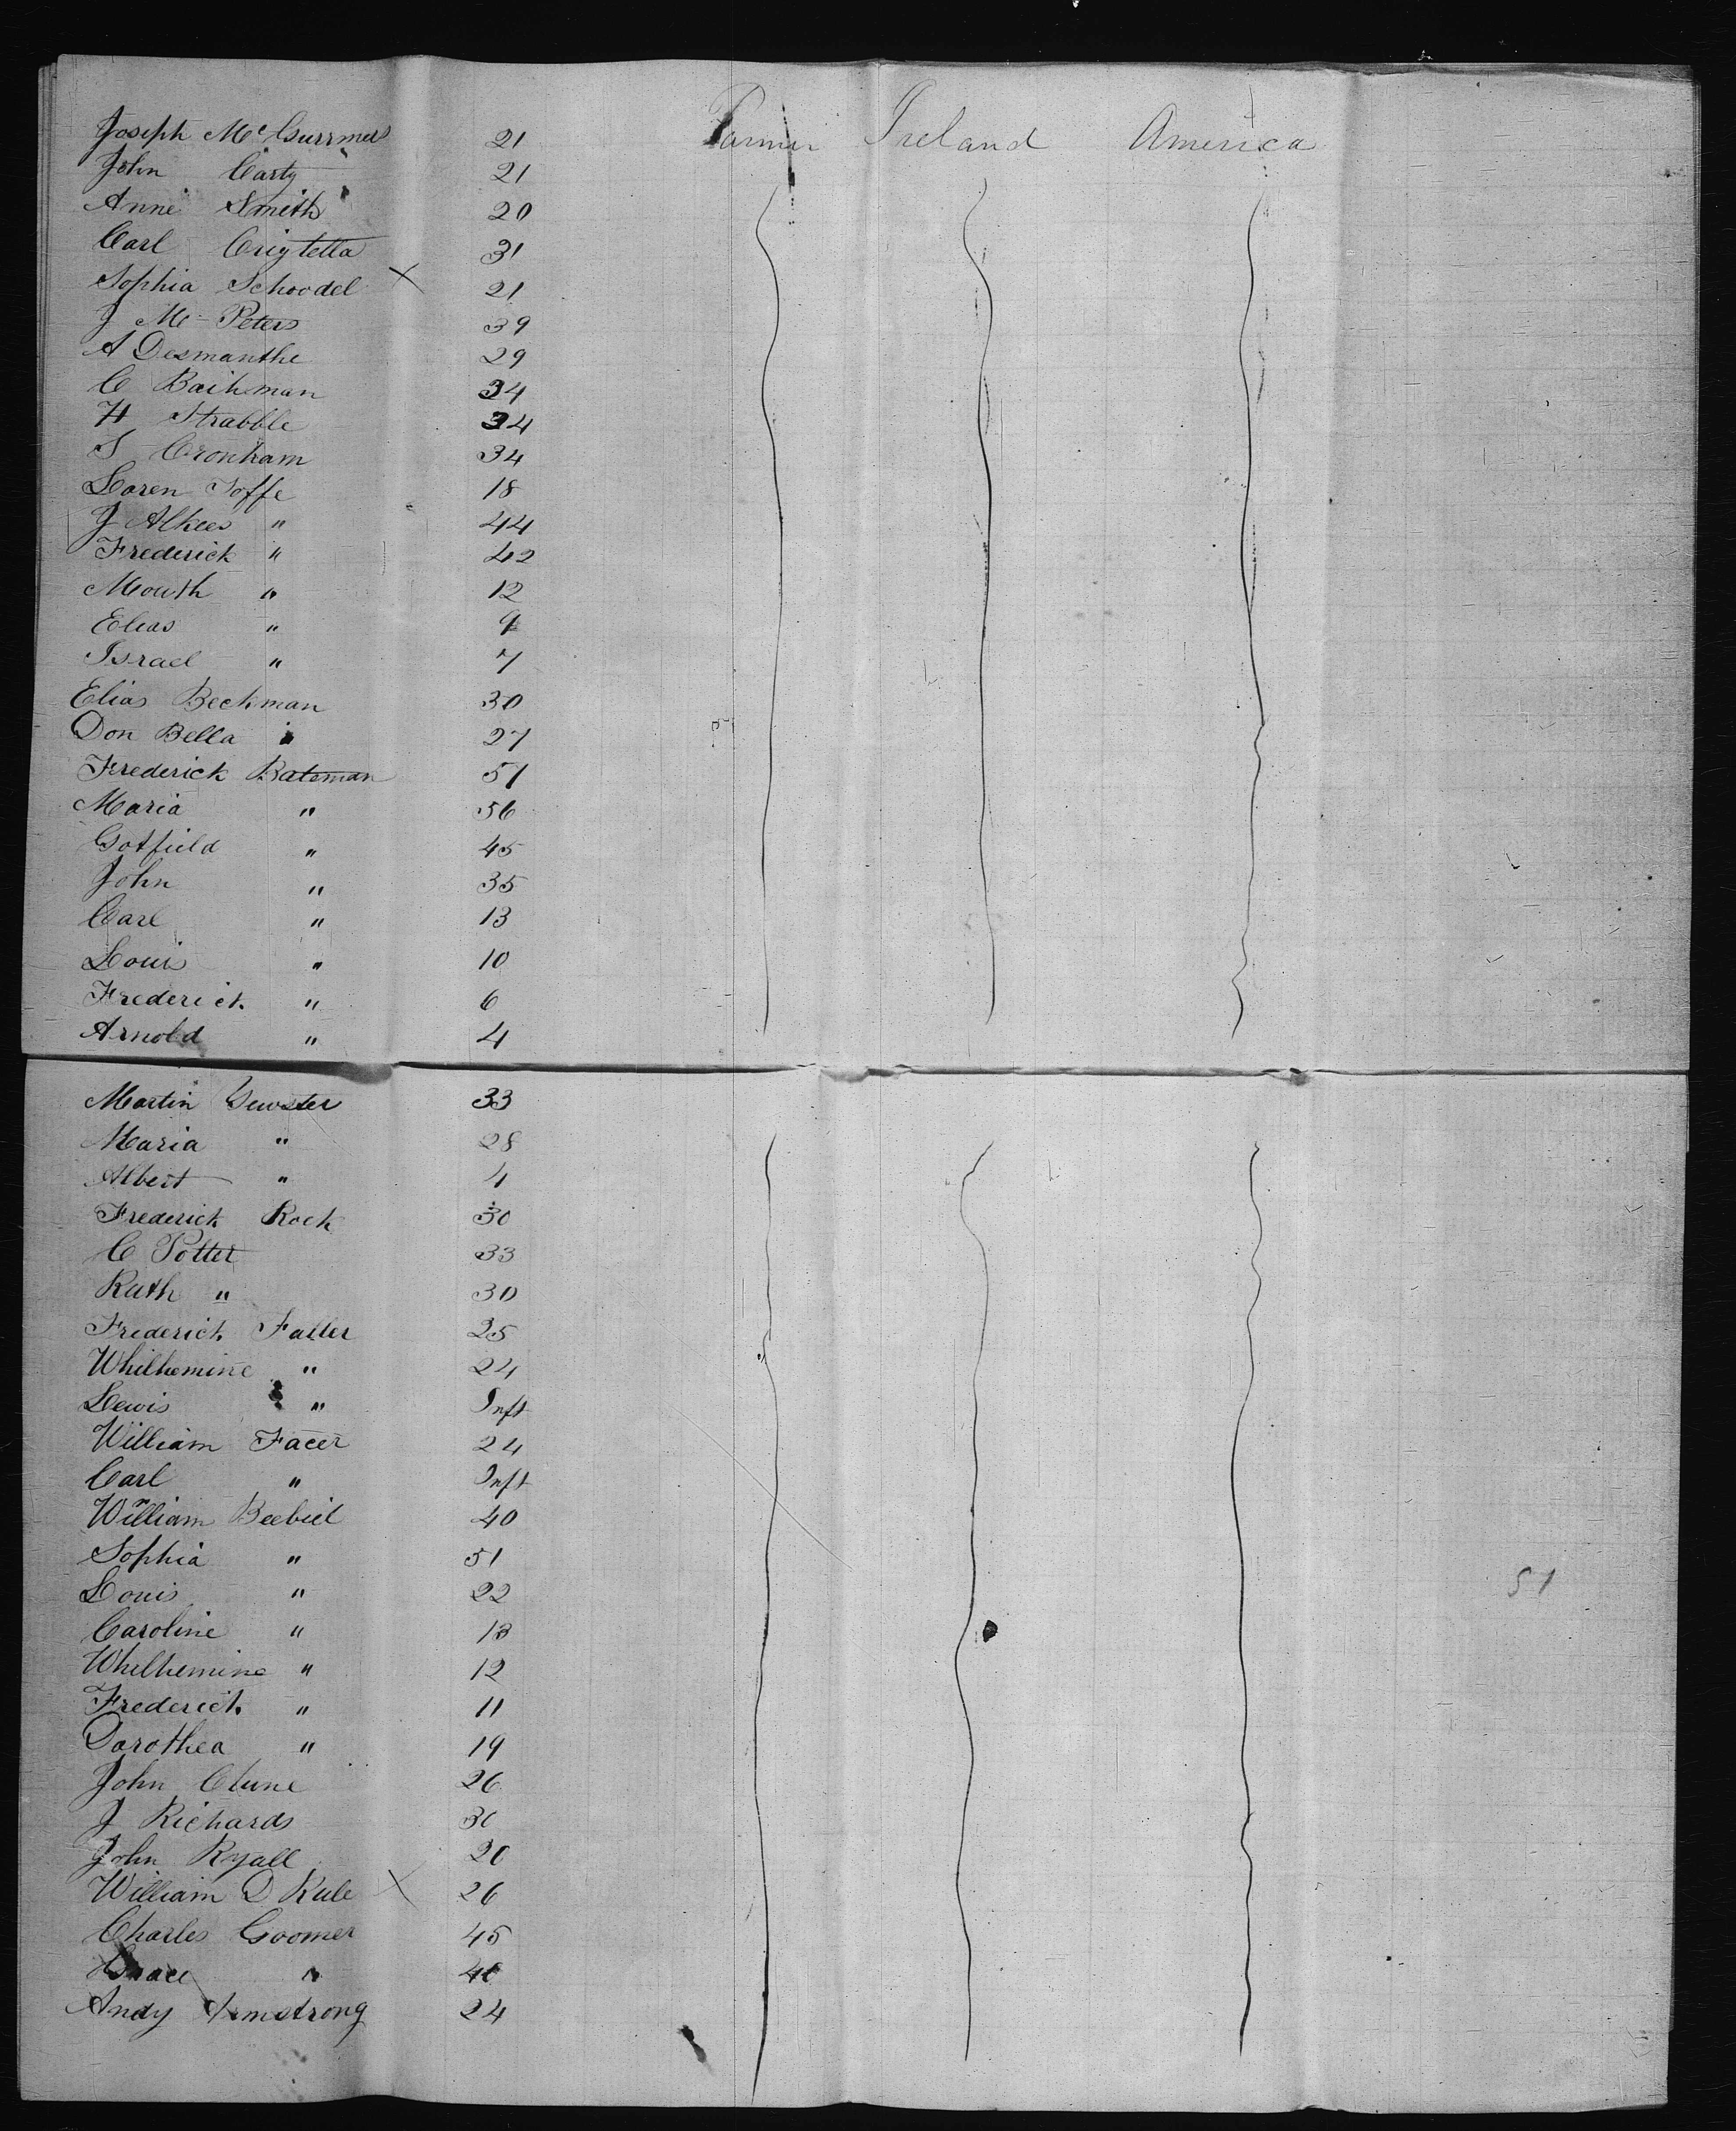 Joseph Mc Gurrmer 21 Farmer Ireland America
John Carty 21
Anne Smith 20
Carl Crigtella 31
Sophia Schoodel X 21
J Mc Peters 39
A Desmanthe 29
C Baihman 34
H Strabble 34
S Cronham 34
Loren Joffe 18
J Alkees " 44
Frederick " 42
Mouth " 12
Elias " 9
Israel " 7
Elias Beckman 30
Don Bella " 27
Frederick Bateman 51
Maria " 56
Gotfield " 45
John " 35
Carl " 13
Louis " 10
Frederick " 6
Arnold " 4
Martin 33
Maria " 28
Albert " 4
Frederick Rock 30
C Potter 33
Ruth " 30
Frederick Faller 25
Whilhemine " 24
Lewis " Inft
William Facer 24
Carl " Inft
William Beebiel 40
Sophia " 51
Louis " 22
Caroline " 13
Whilhemine " 12
Frederick " 11
Dorothea " 19
John Clune 26
J Richards 30
John Ryall 20
William D Rule X 26
Charles Goomer 45
Grace " 40
Andy Armstrong 24
51